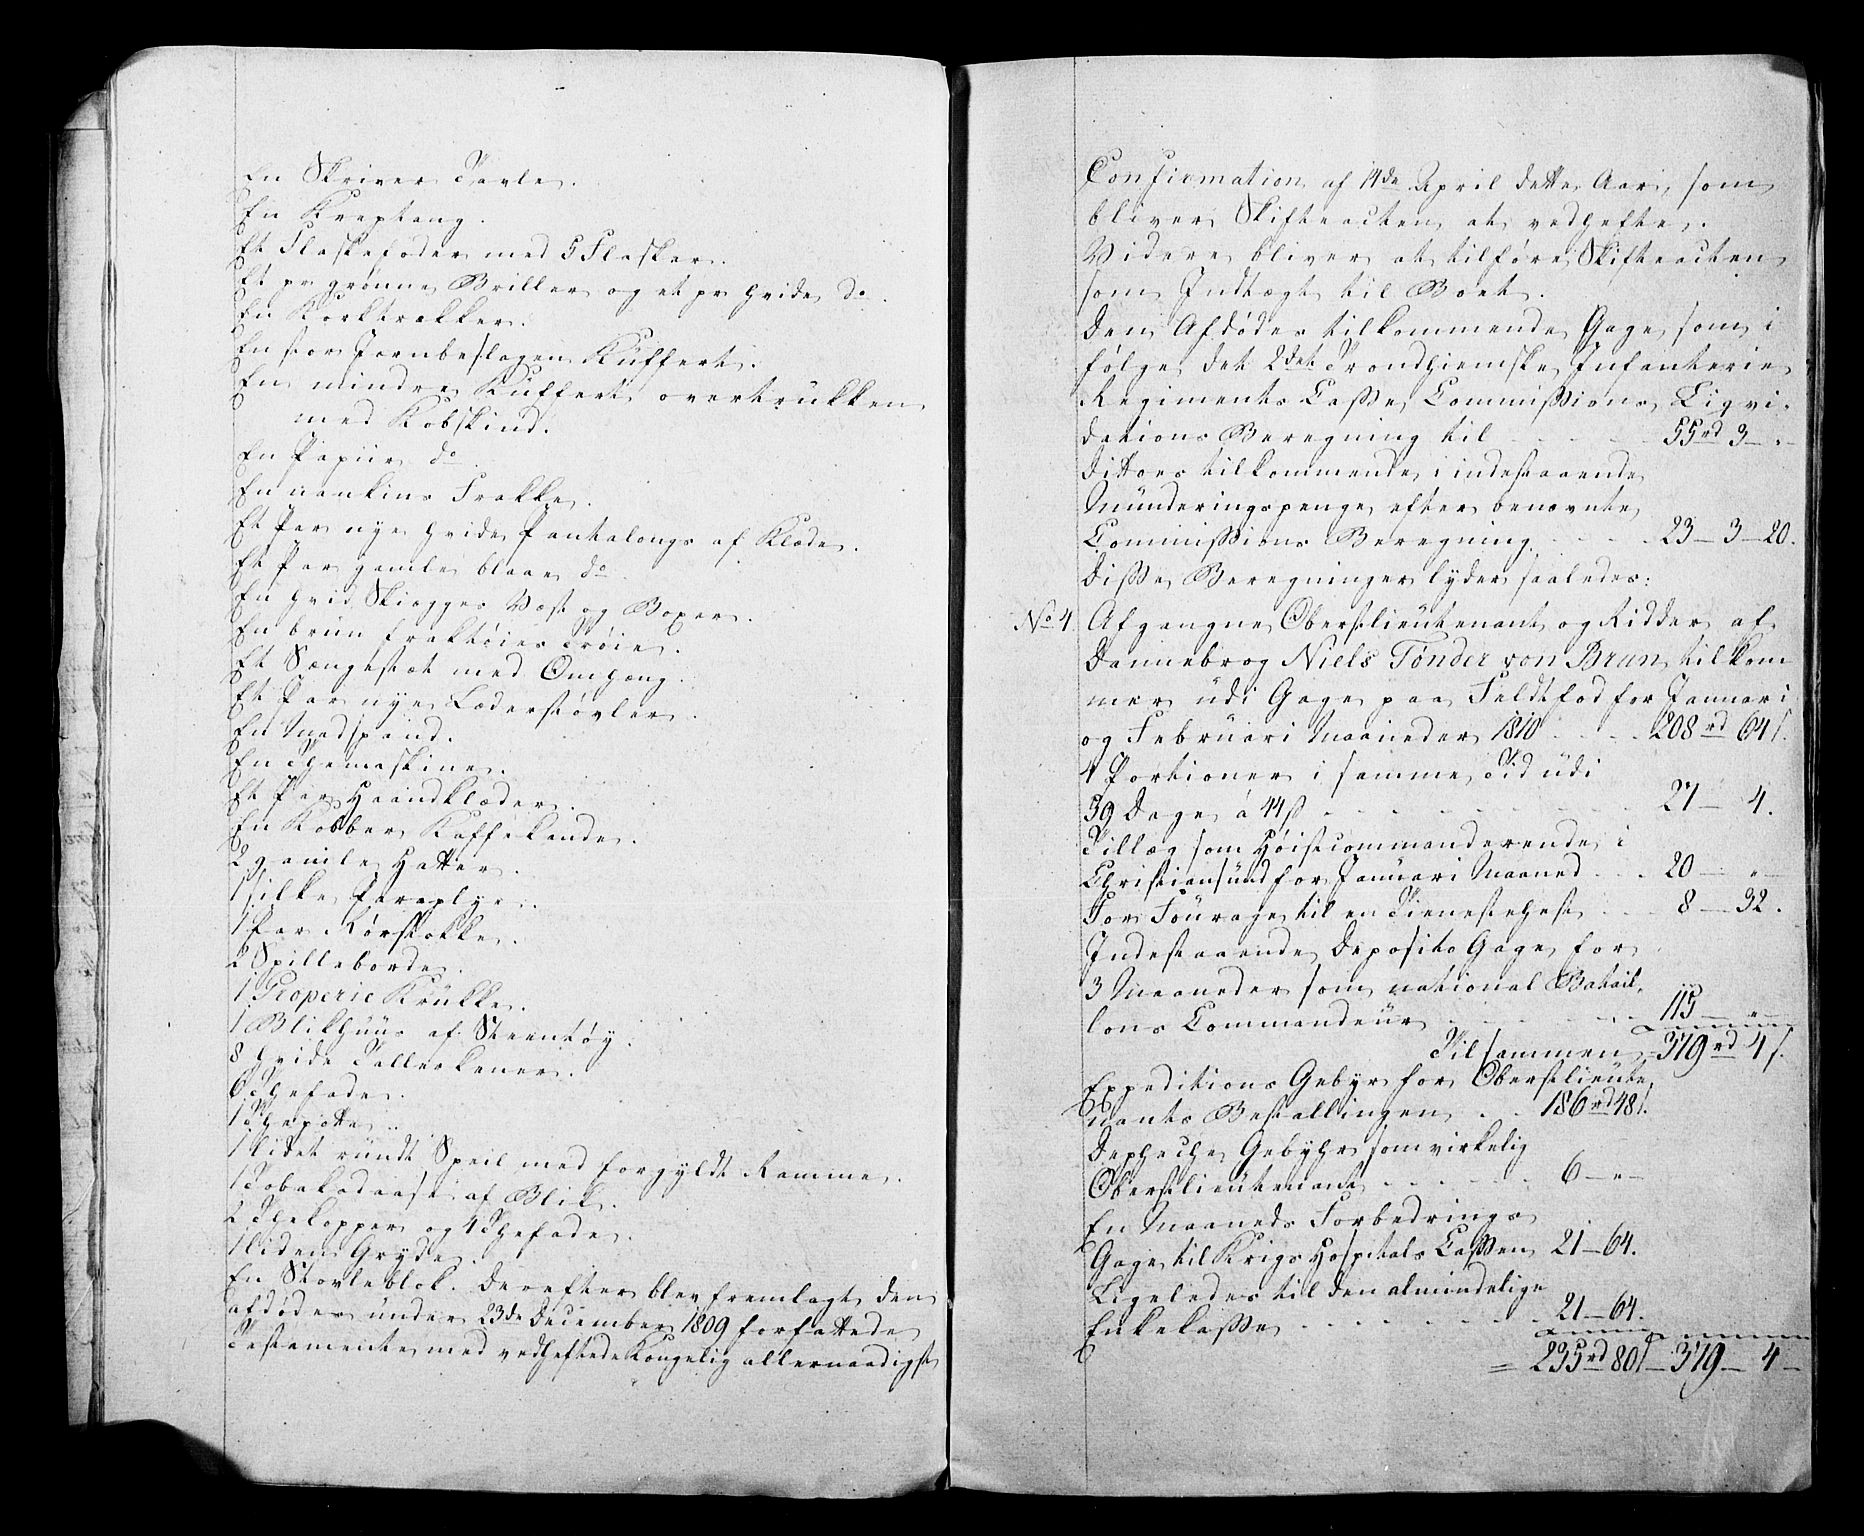 En Skriver Tavle.
En Kreptang.
Et Flaskefoder med 5 Flasker.
Et pr grønne Briller og et pr hvide do.
En Korktrækker.
En stor Jernbeslagen Kuffert.
En mindre Kuffert overtrukken
med Kobskind.
En Papiir do
En nankins Frakke.
Et Par nye hvide Pantalongs af Klæde.
Et Par gamle blaae do
En hvid Skiægges Vest og Boxer.
En brun Trøie.
Et Sængestæt med Omhæng.
Et Par nye Læderstøvler.
En Madspand.
En Themaskine.
Et Par Haandklæder.
En Kobber Kaffekande.
2 gamle Hatter.
1 silke Paraplye.
1 Par Rørstokke.
2 Spilleborde.
1 Groperie Krukke.
1 Blikhuus af Steentøy.
8 hvide Tallerkener.
6 Thefade.
1 Thepotte.
1 lidet rundt Speil med forgyldt Ramme.
1 Tobaksdaase af Blik.
2 Thekopper og 4 Thefade.
1 liden Gryde.
En Støvleblok. Derefter blev fremlagt den
afdødes under 23de December 1809 forfattede
Testamente med vedheftede Kongelig allernaadigst
Confirmation af 14de April dette Aar, som
bliver Skifteacten at vedhefte.
Videre bliver at tilføre Skifteacten
som Indtægt til Boet.
Den Afdødes tilkommende Gage som i
følge det 2det Trondhiemske Infanterie
Regiments Casse Commissions Liqvi-
dations Beregning til 55rd 3 - " -
Dittoes tilkommende i indestaaende
Munderingspenge efter benævnte
Commissions Beregning 23 - 3 - 20.
Disse Beregninger lyder saaledes:
No 4 Afgangne Oberstlieutenant og Ridder af
Dannebrog Niels Tønder von Brun tilkom
mer udi Gage paa Feldtfod for Januari
og Februari Maaneder 1810 208rd 64s.
4 Portioner i samme Tid udi
59 Dage à 44s 27 - 4.
Tillæg som Høistcommanderende i
Christiansund for Januari Maaned 20 - " -
For Fourage til en Tienestehest 8 - 32.
Indestaaende Deposito Gage for
3 Maaneder som national Batail-
lons Commandeur 115 - " -
Tilsammen 379rd 4s.
Expeditions Gebyr for Oberstlieute-
nants Bestallingen 186rd 48s.
Depeche Gebyhr som virkelig
Oberstlieutenant 6 - " -
En Maaneds Forbedrings
Gage til Krigs Hospitals Cassen 21 - 64.
Ligeledes til den almindelige
Enkekasse 21 - 64.
= 235rd 80s - 379 - 4 -